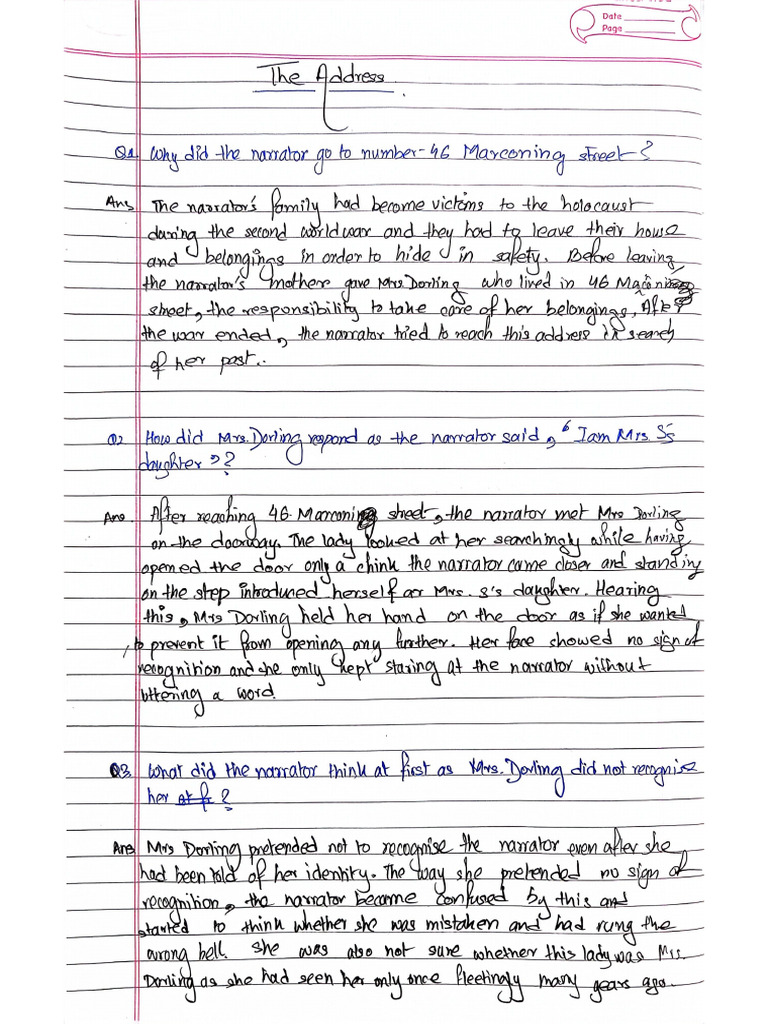 Date
Page
The Address.
Q1. Why did the narrator go to number-46 Marconing street?
Ans The narrator's family had become victims to the holocaust
during the second world war and they had to leave their house
and belongings in order to hide in safety. Before leaving,
the narrator's mothere gave Mrs Dorling who lived in 46 Maconi
street, the responsibility to take care of her belongings, After
the war ended, the narrator tried to reach this address in search
of her past.
Q2 How did Mrs. Dorling respond as the narrator said, "I am Mrs. S's
daughter"?
Ans. After reaching 46 Marconing street, the narrator met Mrs Dorling
on the doorway. The lady looked at her searchingly while having
opened the door only a chink the narrator came closer and standing
on the step introduced herself as Mrs. S's daughter. Hearing
this, Mrs Dorling held her hand on the door as if she wanted
to prevent it from opening any further. Her face showed no sign of
recognition and she only kept staring at the narrator without
uttering a word.
Q3. What did the narrator think at first as Mrs. Dorling did not recognise
her ?
Ans Mrs Dorling pretended not to recognise the narrator even after she
had been told of her identity. The way she pretended no sign of
recognition, the narrator became confused by this and
started to think whether she was mistaken and had rung the
wrong bell. She was also not sure whether this lady was Mrs.
Dorling as she had seen her only once fleetingly many years ago.